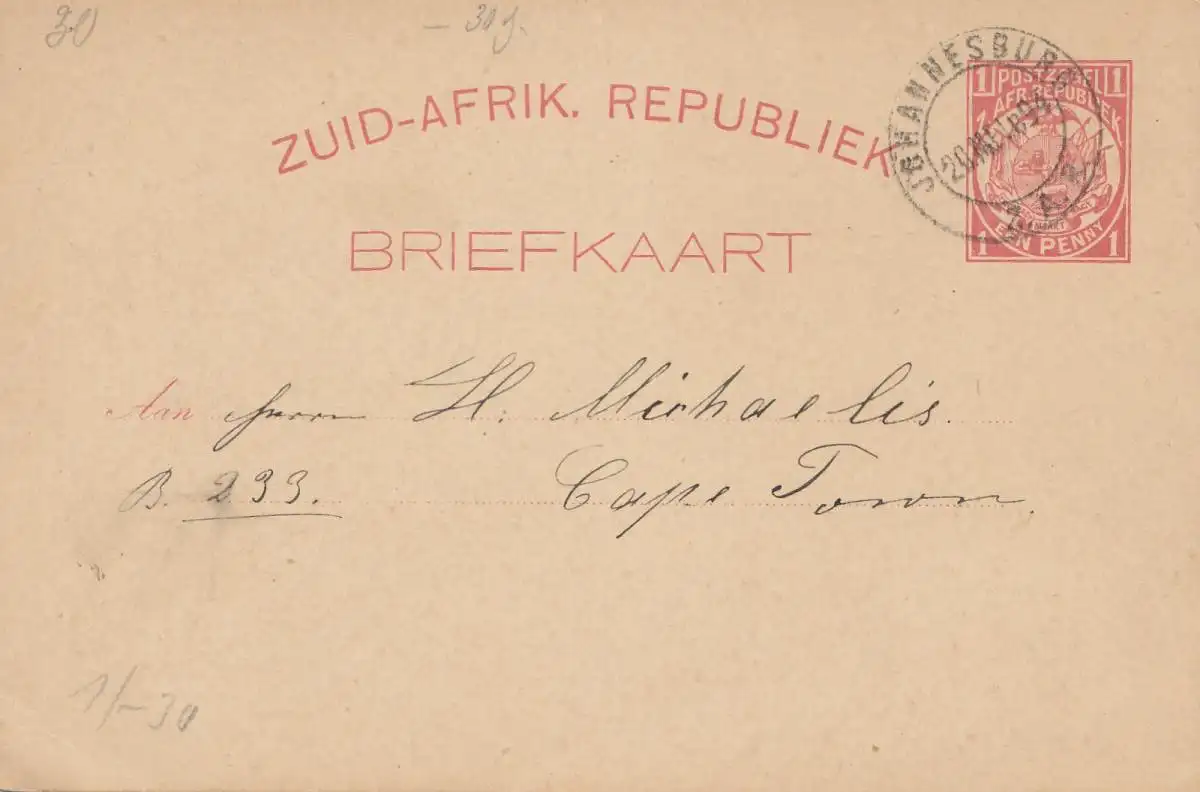 30
- 30 g.
ZUID-AFRIK. REPUBLIEK
BRIEFKAART
JOHANNESBURG
Z.A.R.
1 POSTZEGEL 1
AFR. REPUBLIEK
EEN PENNY
1 1
Aan Herrn H. Michaelis.
B. 233. Cape Town.
1/-30